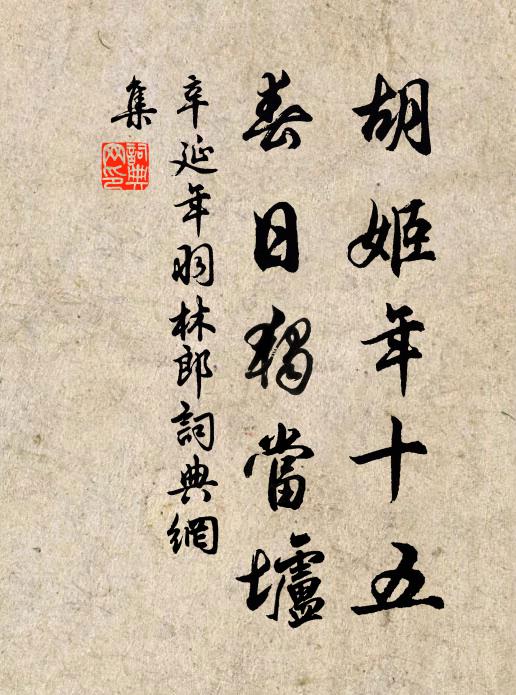 胡姬年十五
春日獨當壚
辛延年羽林郎詞典網
集
詞典網印